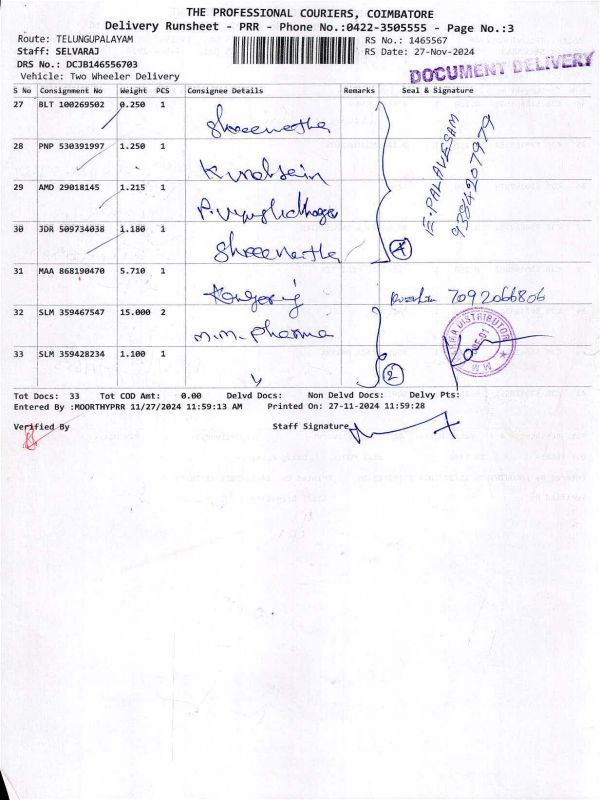 THE PROFESSIONAL COURIERS, COIMBATORE
Delivery Runsheet - PRR - Phone No.:0422-3505555 - Page No.:3
Route: TELUNGUPALAYAM RS No.: 1465567
Staff: SELVARAJ RS Date: 27-Nov-2024
DRS No.: DCJB146556703
DOCUMENT DELIVERY
Vehicle: Two Wheeler Delivery
S No Consignment No Weight PCS Consignee Details Remarks Seal & Signature
27 BLT 100269502 0.250 1
E. PALAVESAM
9384207979
28 PNP 530391997 1.250 1
29 AMD 29018145 1.215 1
30 JDR 509734038 1.180 1
4
31 MAA 868190470 5.710 1
7092066806
32 SLM 359467547 15.000 2 M.M. Pharma
DISTRIBUTOR
33 SLM 359428234 1.100 1
2
Tot Docs: 33 Tot COD Amt: 0.00 Delvd Docs: Non Delvd Docs: Delvy Pts:
Entered By :MOORTHYPRR 11/27/2024 11:59:13 AM Printed On: 27-11-2024 11:59:28
Verified By Staff Signature